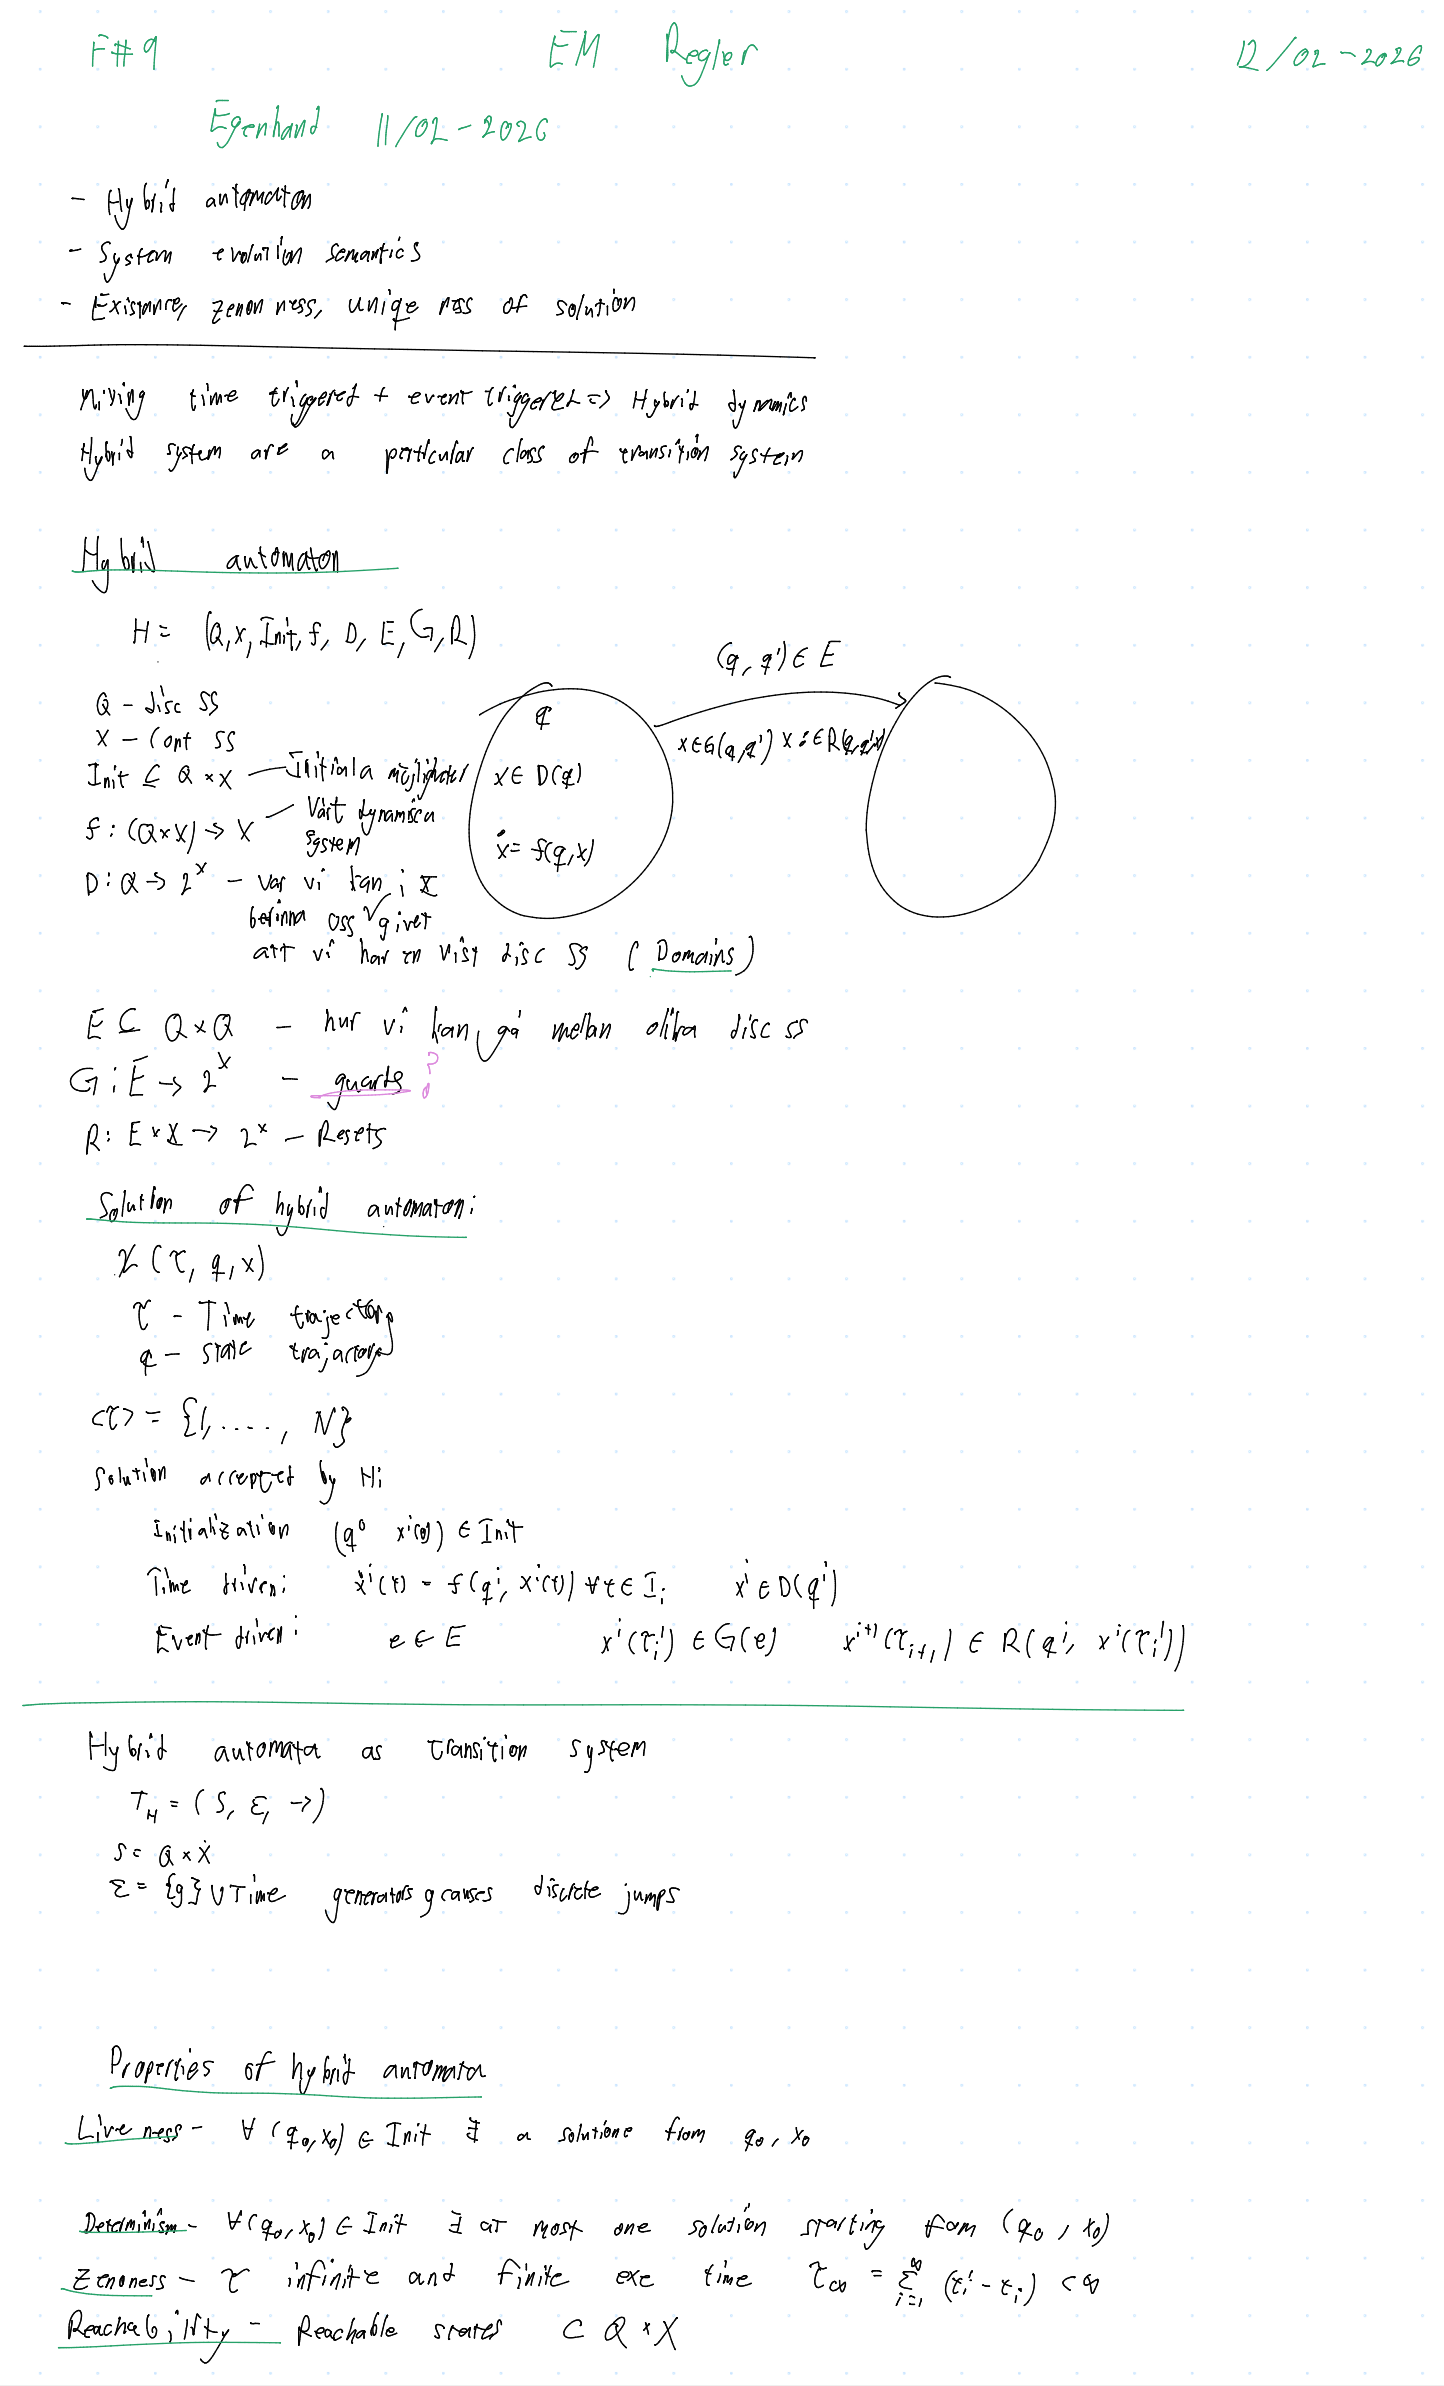 F#9 EM Regler 12/02-2026
Egenhand 11/02-2026
- Hybrid automaton
- System evolution semantics
- Existance, zenon ness, uniqe ness of solution
Mixing time triggered + event triggered => Hybrid dynamics
Hybrid system are a particular class of transition system
Hybrid automaton
H = (Q, X, Init, f, D, E, G, R)
Q - disc SS
X - Cont SS
Init ⊆ Q × X — Initiala möjligheter
f : (Q×X) → X — Vårt dynamiska system
D : Q → 2^X - var vi kan i X
befinna oss givet
att vi har en visst disc SS (Domains)
(q, q') ∈ E
q
x ∈ G(q,q') x :∈ R(q,q',x)
x ∈ D(q)
ẋ = f(q,x)
E ⊆ Q×Q - hur vi kan gå mellan olika disc ss
G : E → 2^X - guards ?
R : E × X → 2^X - Resets
Solution of hybrid automaton:
χ (τ, q, x)
τ - Time trajectory
q - state trajactory
<τ> = {1, ...., N}
Solution accepted by H:
Initialization (q⁰ xⁱ(0)) ∈ Init
Time driven: ẋⁱ(t) = f(qⁱ, xⁱ(t)) ∀t ∈ Iᵢ xⁱ ∈ D(qⁱ)
Event driven: e ∈ E xⁱ(τᵢ') ∈ G(e) xⁱ⁺¹(τᵢ₊₁) ∈ R(qⁱ, xⁱ(τᵢ'))
Hybrid automata as transition system
T_H = (S, Σ, →)
S = Q × X
Σ = {g} ∪ Time generators g causes discrete jumps
Properties of hybrid automata
Live ness - ∀ (q₀, x₀) ∈ Init ∃ a solutione from q₀, x₀
Determinism - ∀(q₀, x₀) ∈ Init ∃ at most one solution starting from (q₀, x₀)
Zenoness - τ infinite and finite exe time τ∞ = Σ_{i=1}^∞ (τᵢ' - τᵢ) < ∞
Reachability - Reachable states ⊂ Q × X